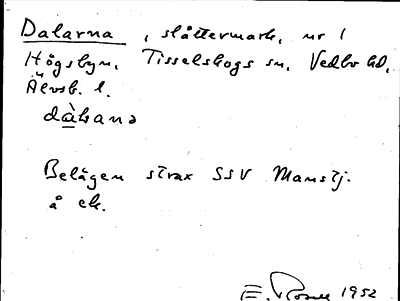 Dalarna, slåttermark, nr 1
Högsbyn, Tisselskogs sn, Vedbo hd,
Älvsb. l.
Belägen strax SSV Manstj.
å ek.
E. 1952